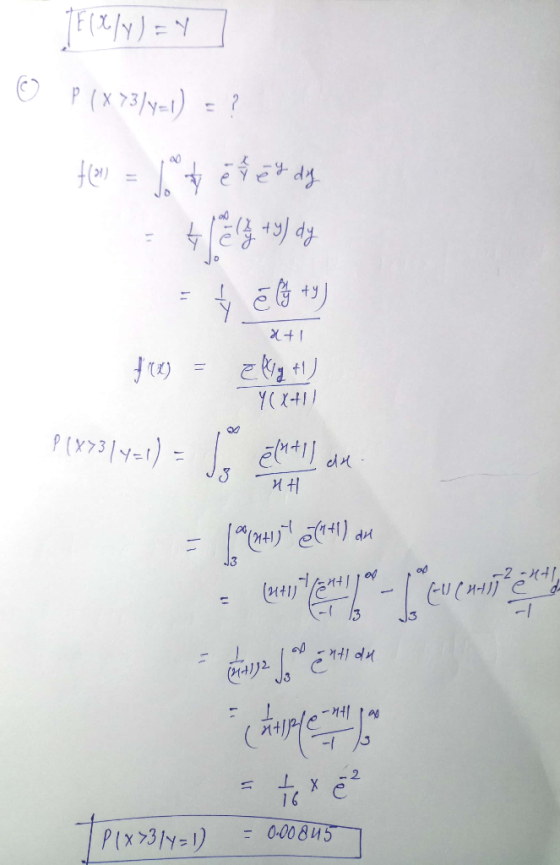 E(X/Y) = Y
(c) P(X>3/Y=1) = ?
f(x) = ∫₀^∞ 1/Y e^-x/Y e^-y dy
= 1/Y ∫₀^∞ e^-(x/y + y) dy
= 1/Y e^-(x/y + y) / x+1
f(x) = e^-(x/y + 1) / Y(x+1)
P(X>3/Y=1) = ∫₃^∞ e^-(x+1) / x+1 dx.
= ∫₃^∞ (x+1)^-1 e^-(x+1) dx
= (x+1)^-1 (e^-x+1 / -1)₃^∞ - ∫₃^∞ (-1)(x+1)^-2 e^-x+1 / -1 d
= 1/(x+1)² ∫₃^∞ e^-x+1 dx
= (1/x+1)² (e^-x+1 / -1)₃^∞
= 1/16 × e^-2
P(X>3/Y=1) = 0.00845